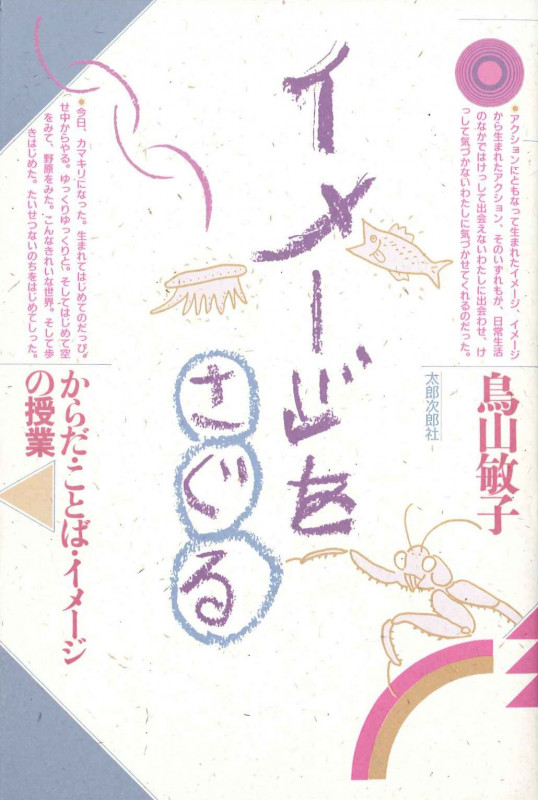 ●アクションにともなって生まれたイメージ、イメージ
から生まれたアクション、そのいずれもが、日常生活
のなかではけっして出会えないわたしに出会わせ、け
っして気づかないわたしに気づかせてくれるのだった。
鳥山敏子
太郎次郎社
イメージを
さぐる
●今日、カマキリになった。生まれてはじめてのだっぴ。
せ中からやる。ゆっくりゆっくりと。そしてはじめて空
をみて、野原をみた。こんなきれいな世界。そして歩
きはじめた。たいせつないのちをはじめてしった。
からだ・ことば・イメージ
の授業